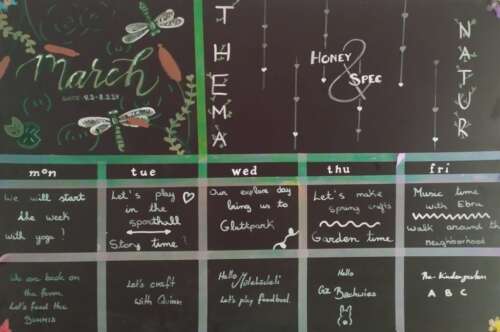 March
THEMA
HONEY
&
SPEC
NATUR
mon
tue
wed
thu
fri
We will start
the week
with yoga!
Let's play
in the
sporthall
Story time!
Our explore day
bring us to
Let's make
spring crafts
Garden time
Music time
with Ebru
Walk around the
neighborhood
We are back on
the farm
Let's feed the
BUNNIES
Let's craft
with Quinn
Hello
Let's play foodbowl.
Hello
The Kindergarten
A B C